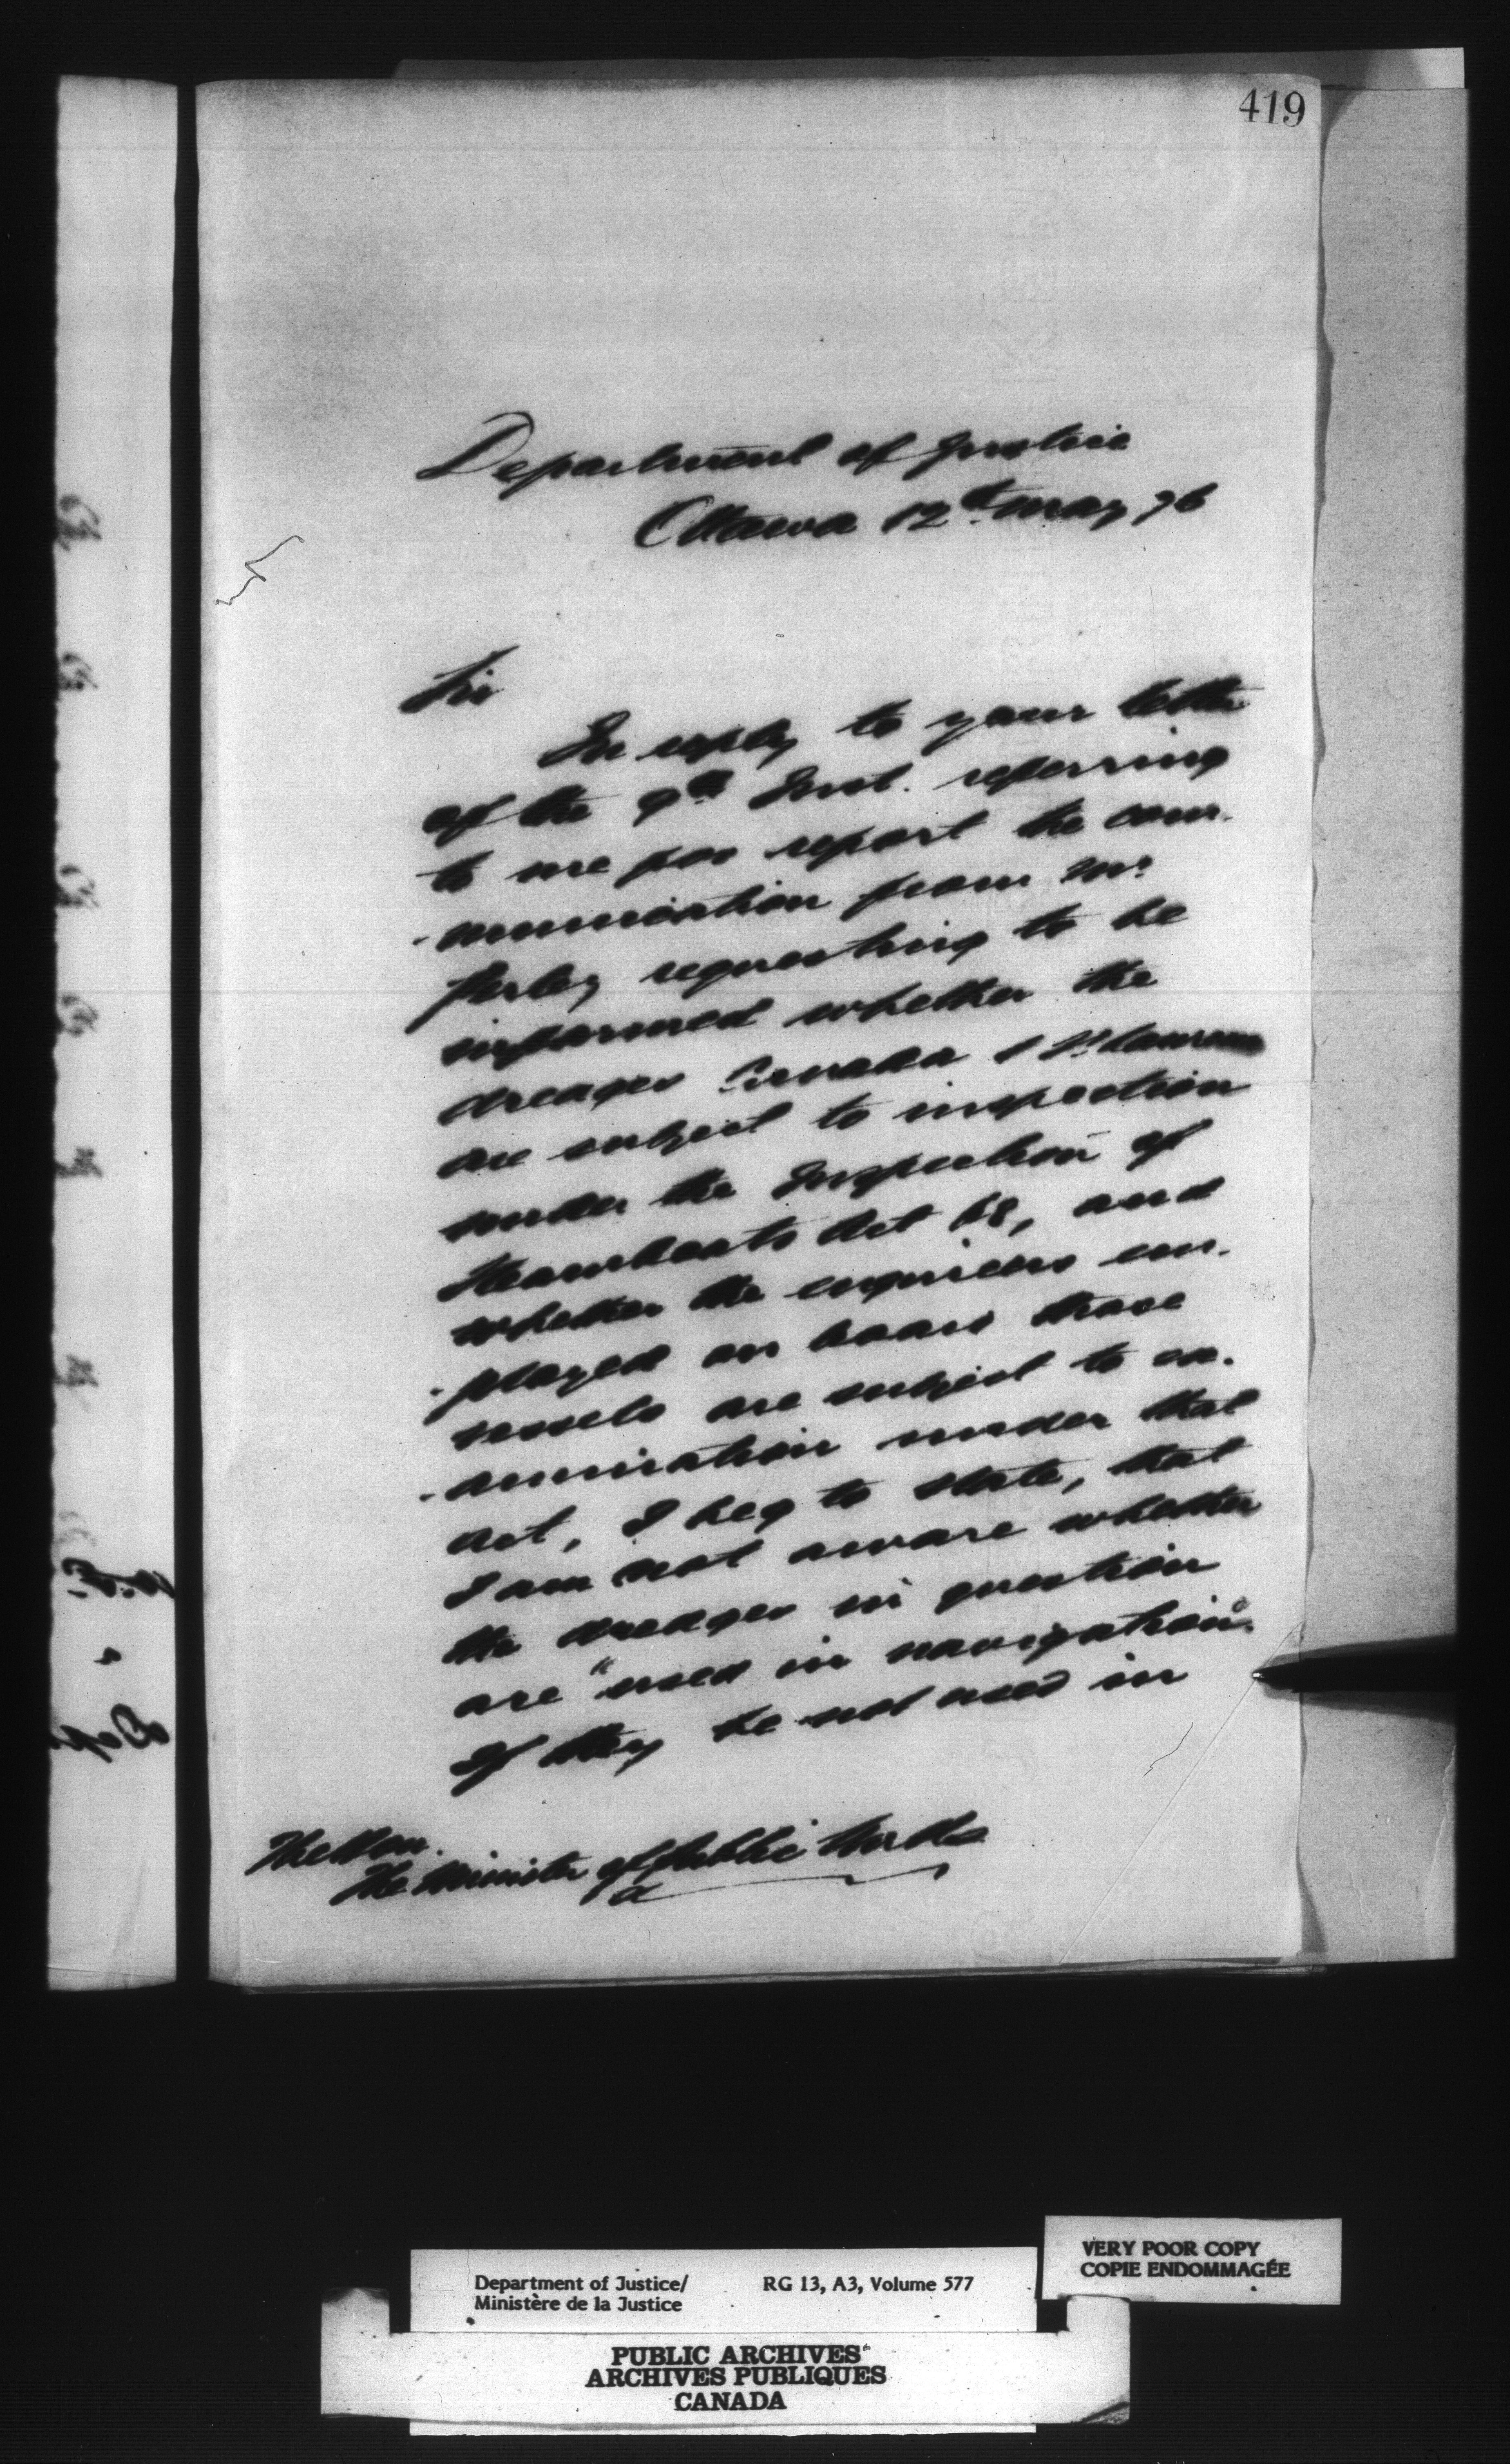 419
Department of Justice
Ottawa 12th May 76
Sir
In reply to your letter
of the 9th Inst. referring
to me for report the com-
-munication from Mr
Perley requesting to be
informed whether the
dredges Canada & St Lawrence
are subject to inspection
under the Inspection of
Steamboats Act 68, and
whether the engineers em-
-ployed on board those
vessels are subject to ex-
-amination under that
Act, I beg to state, that
I am not aware whether
the dredges in question
are "used in navigation".
If they be not used in
The Hon.
The Minister of Public Works
VERY POOR COPY
COPIE ENDOMMAGÉE
Department of Justice/ RG 13, A3, Volume 577
Ministère de la Justice
PUBLIC ARCHIVES
ARCHIVES PUBLIQUES
CANADA